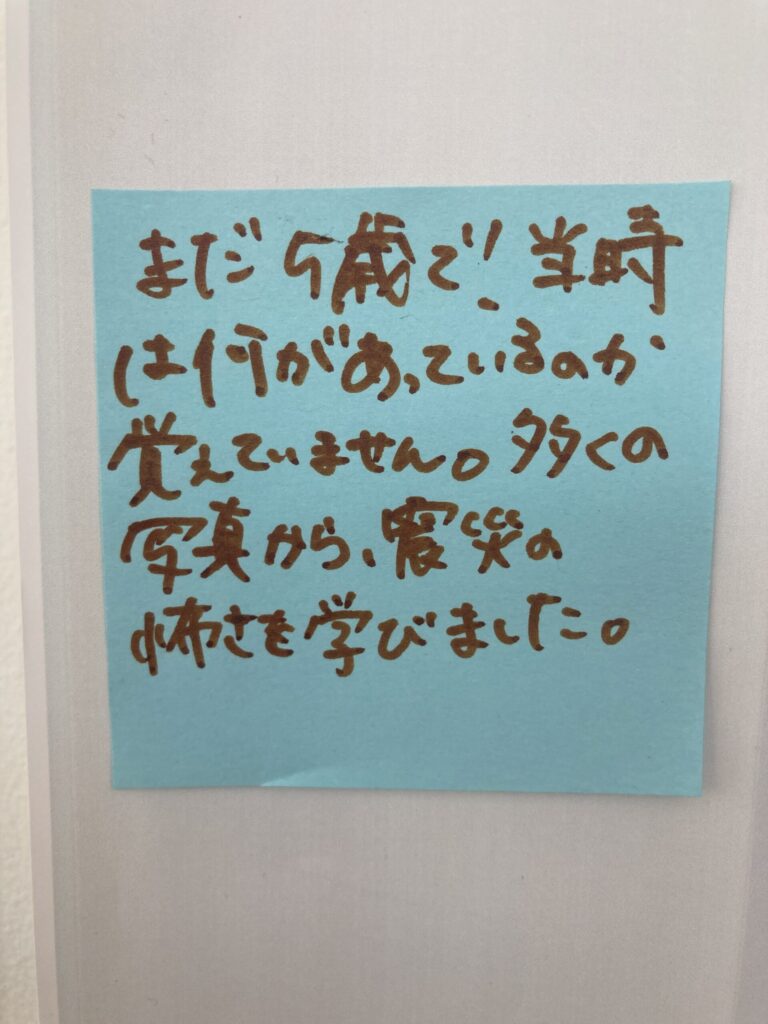 まだ5歳で、当時
は何があっているのか
覚えていません。多くの
写真から、震災の
怖さを学びました。